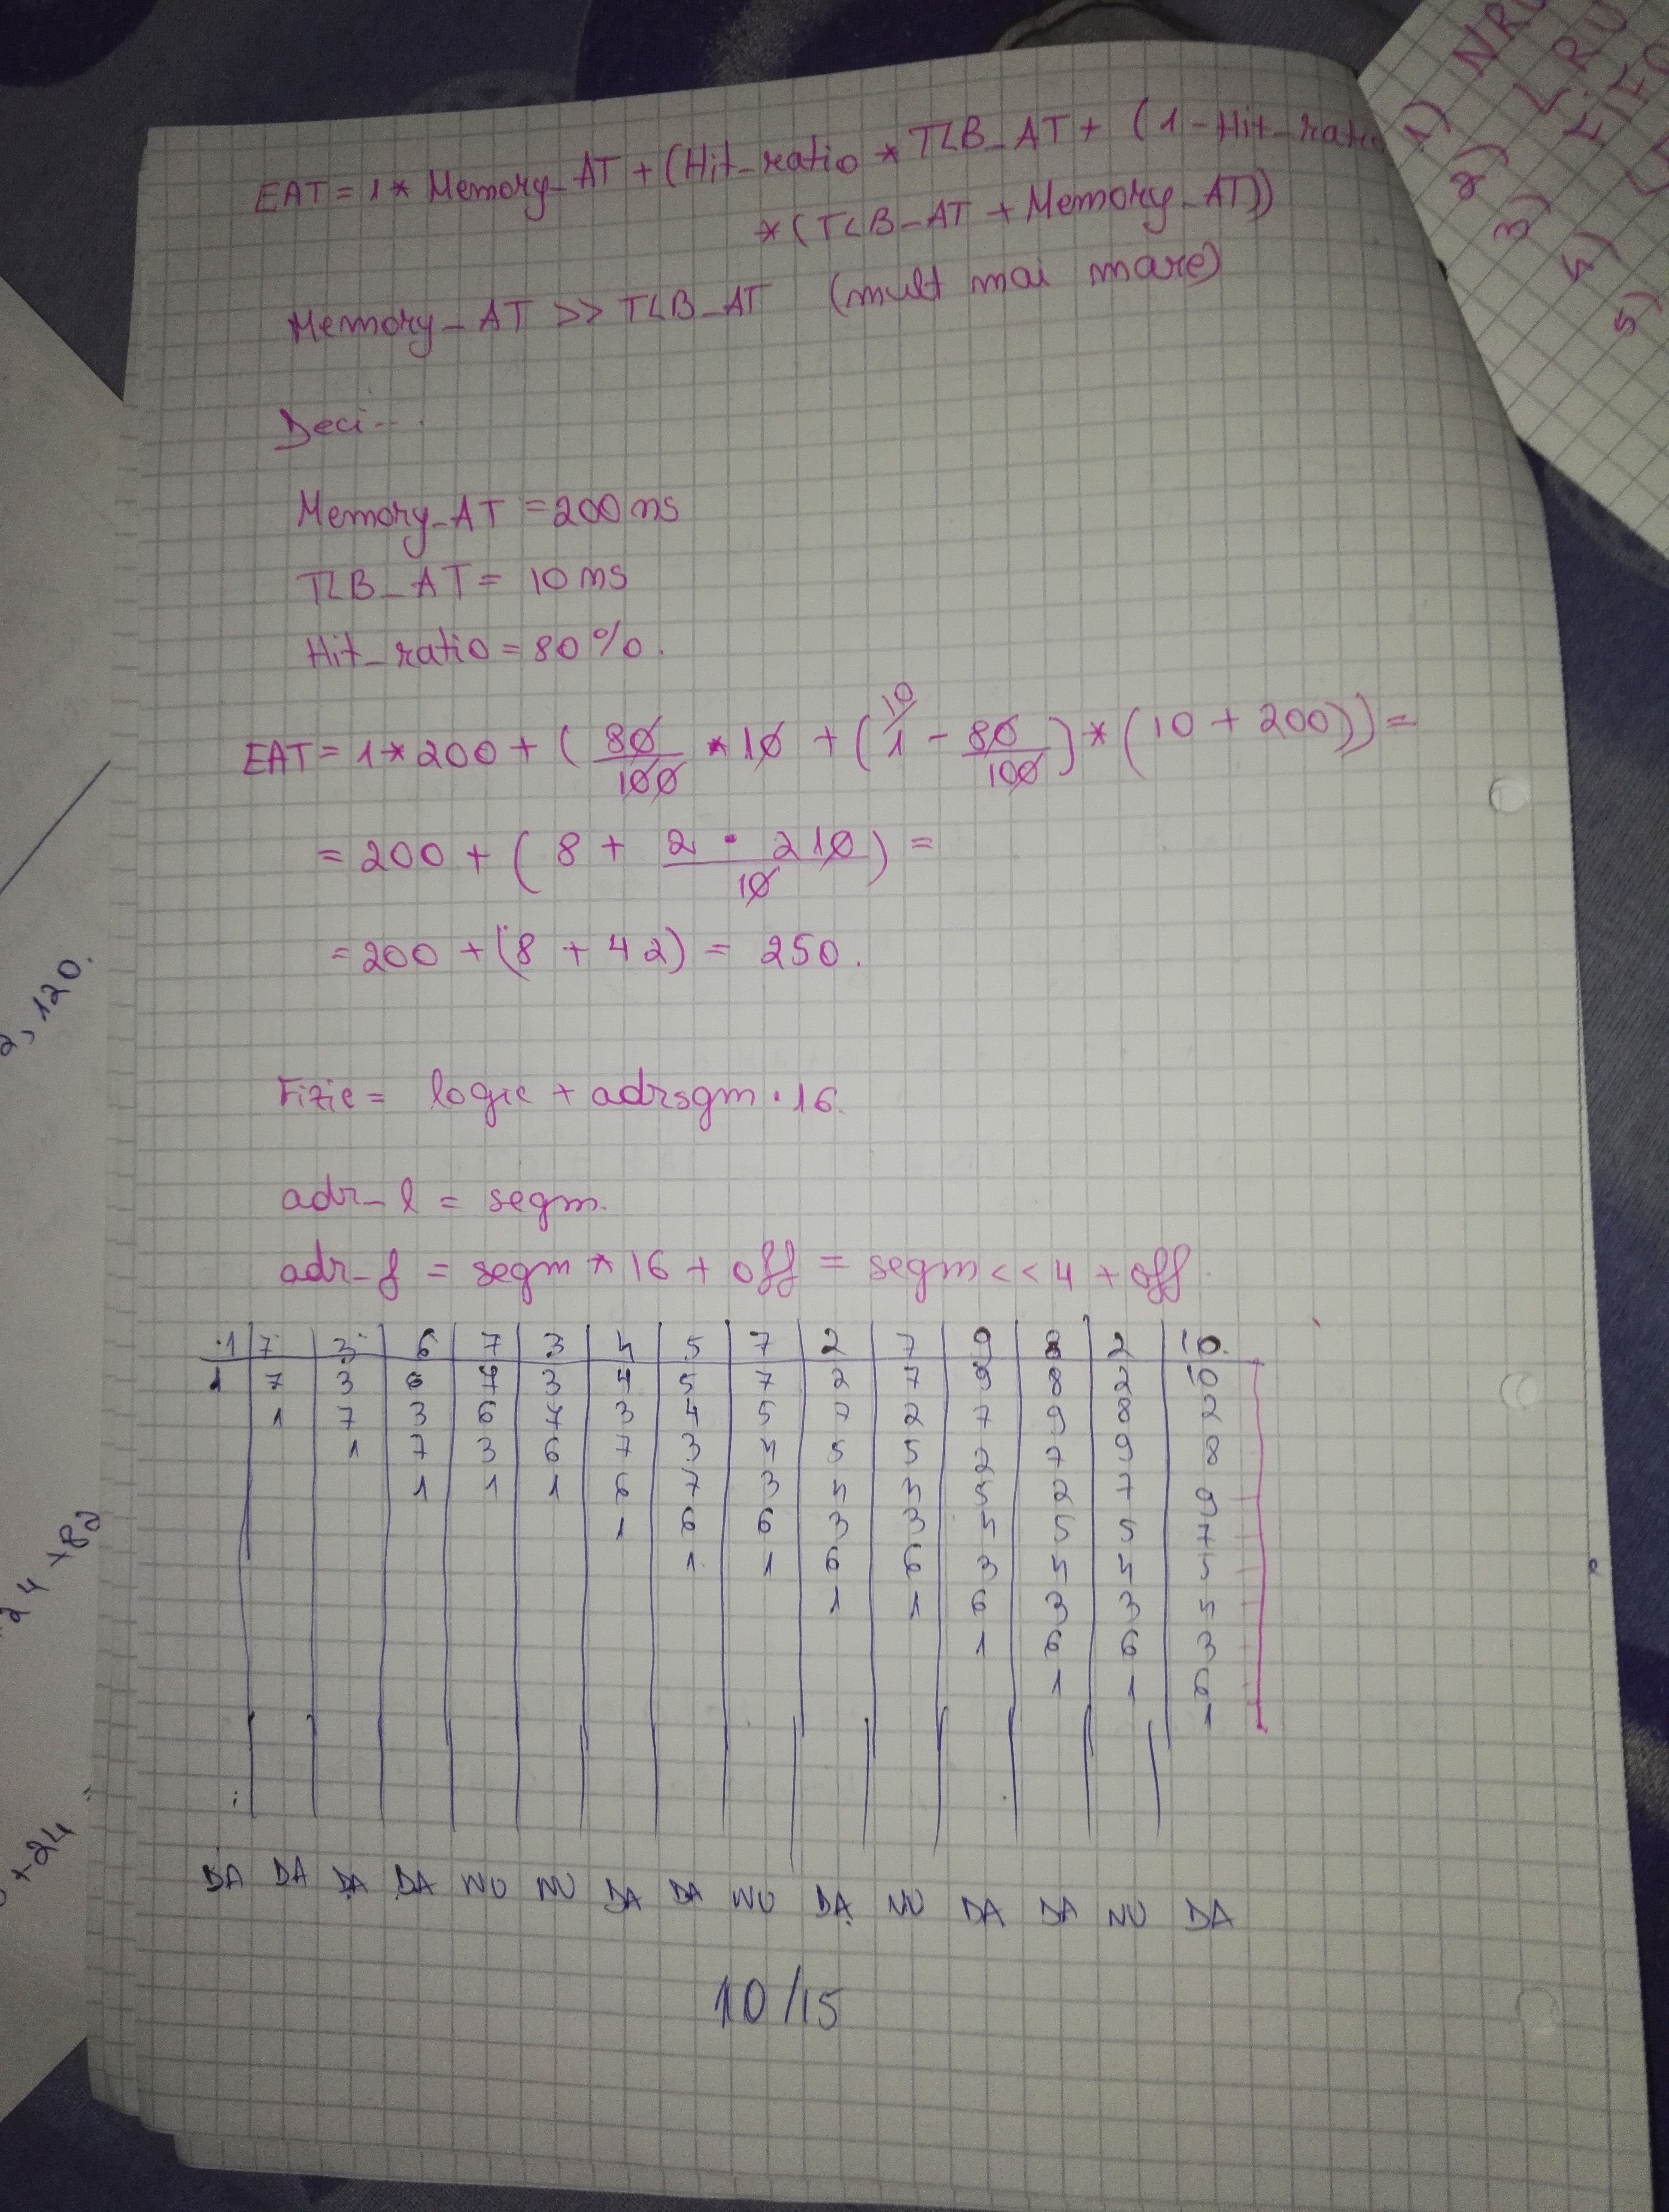 EAT = 1 * Memory_AT + (Hit_ratio * TLB_AT + (1 - Hit_ratio
* (TLB_AT + Memory_AT))
Memory_AT >> TLB_AT (mult mai mare)
Deci...
Memory_AT = 200 ns
TLB_AT = 10 ns
Hit_ratio = 80%.
EAT = 1 * 200 + ( 80/100 * 10 + ( 10/ 1 - 80/100 ) * (10 + 200)) =
= 200 + ( 8 + 2 · 210 / 10 ) =
= 200 + (8 + 42) = 250.
Fizic = logic + adrsgm · 16.
adr_l = segm.
adr_f = segm * 16 + off = segm << 4 + off.
1 7 3 6 7 3 4 5 7 2 7 9 8 2 10.
1 7 3 6 7 3 4 5 7 2 7 9 8 2 10
1 7 3 6 7 3 4 5 7 2 7 9 8 2
1 7 3 6 7 3 4 5 5 2 7 9 8
1 1 1 6 7 3 4 4 5 2 7 9
1 6 6 3 3 4 5 5 7
1 1 6 6 3 4 4 5
1 1 6 3 3 4
1 6 6 3
1 1 6
1
DA DA DA DA NU NU DA DA NU DA NU DA DA NU DA
10/15
1) NRU
2) LRU
3) FIFO
4)
5)
, 120.
24 +82
+24 =